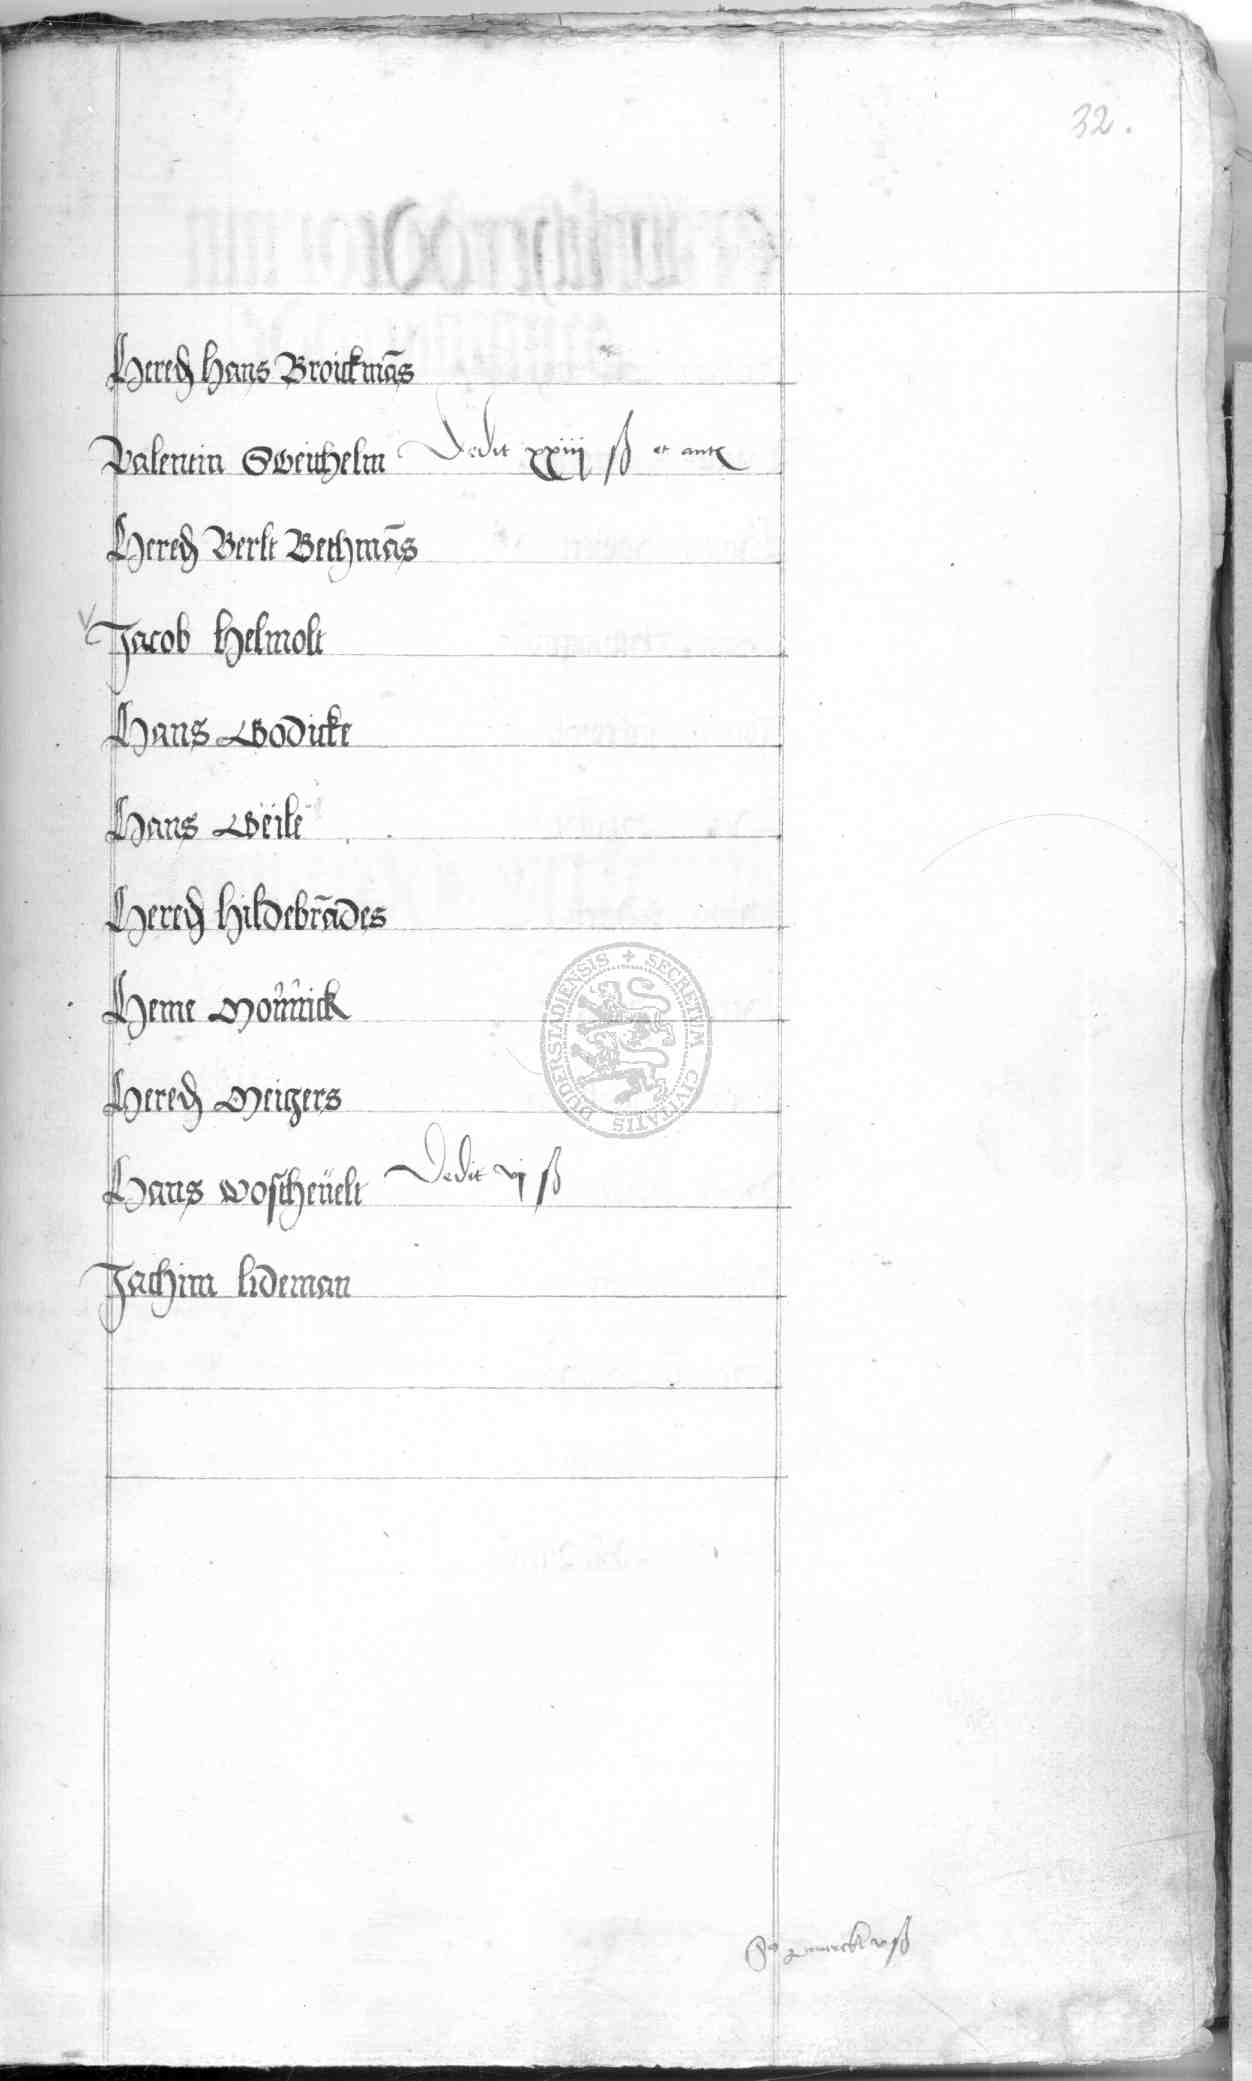 32.
Hered hans Broickmās
Valentin Sweithelm Dedit xxiiij ß et ante
Hered Berlt Bethmās
Jacob helmolt
Hans Godicke
Hans Weile
Hered hildebrādes
Heine
Hered Meigers
Hans woscheuelt Dedit vj ß
Jachim lideman
SECRETVM CIVITATIS DUDERSTADIENSIS